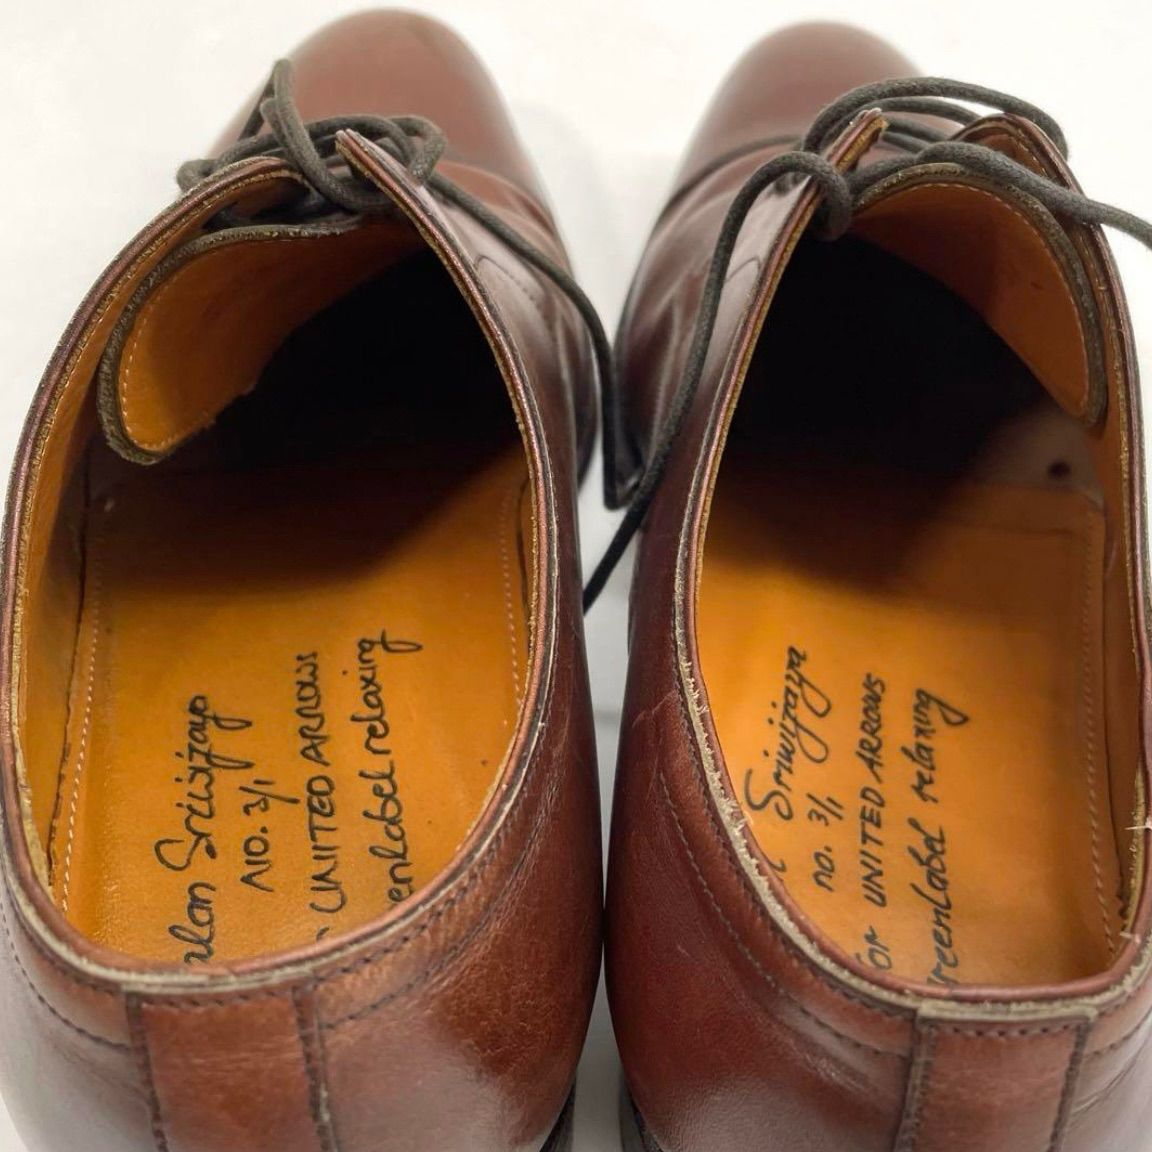 alan Sriwijaya
no. 3/1
UNITED ARROWS
enlabel relaxing
Sriwijaya
no. 3/1
for UNITED ARROWS
reenlabel relaxing